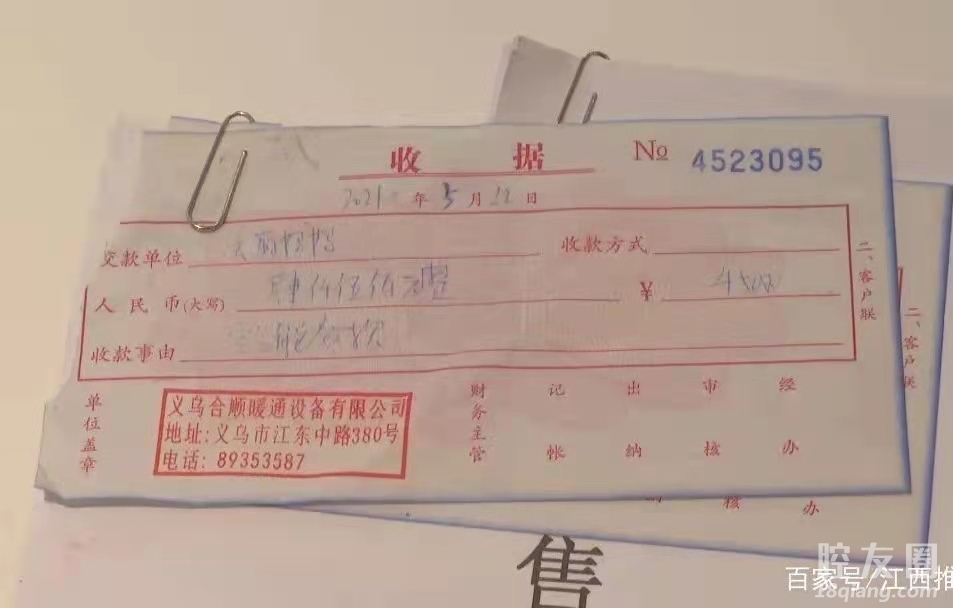 收 据 № 4523095
2021 年 5 月 22 日
交款单位 收款方式
人民币(大写) 肆仟伍佰元整 ¥ 4500
收款事由
二、客户联
单位盖章
义乌合顺暖通设备有限公司
地址:义乌市江东中路380号
电话: 89353587
财务主管 记帐 出纳 审核 经办
二、客户联
核 办
售
腔友圈
18qiang.com
百家号/江西推